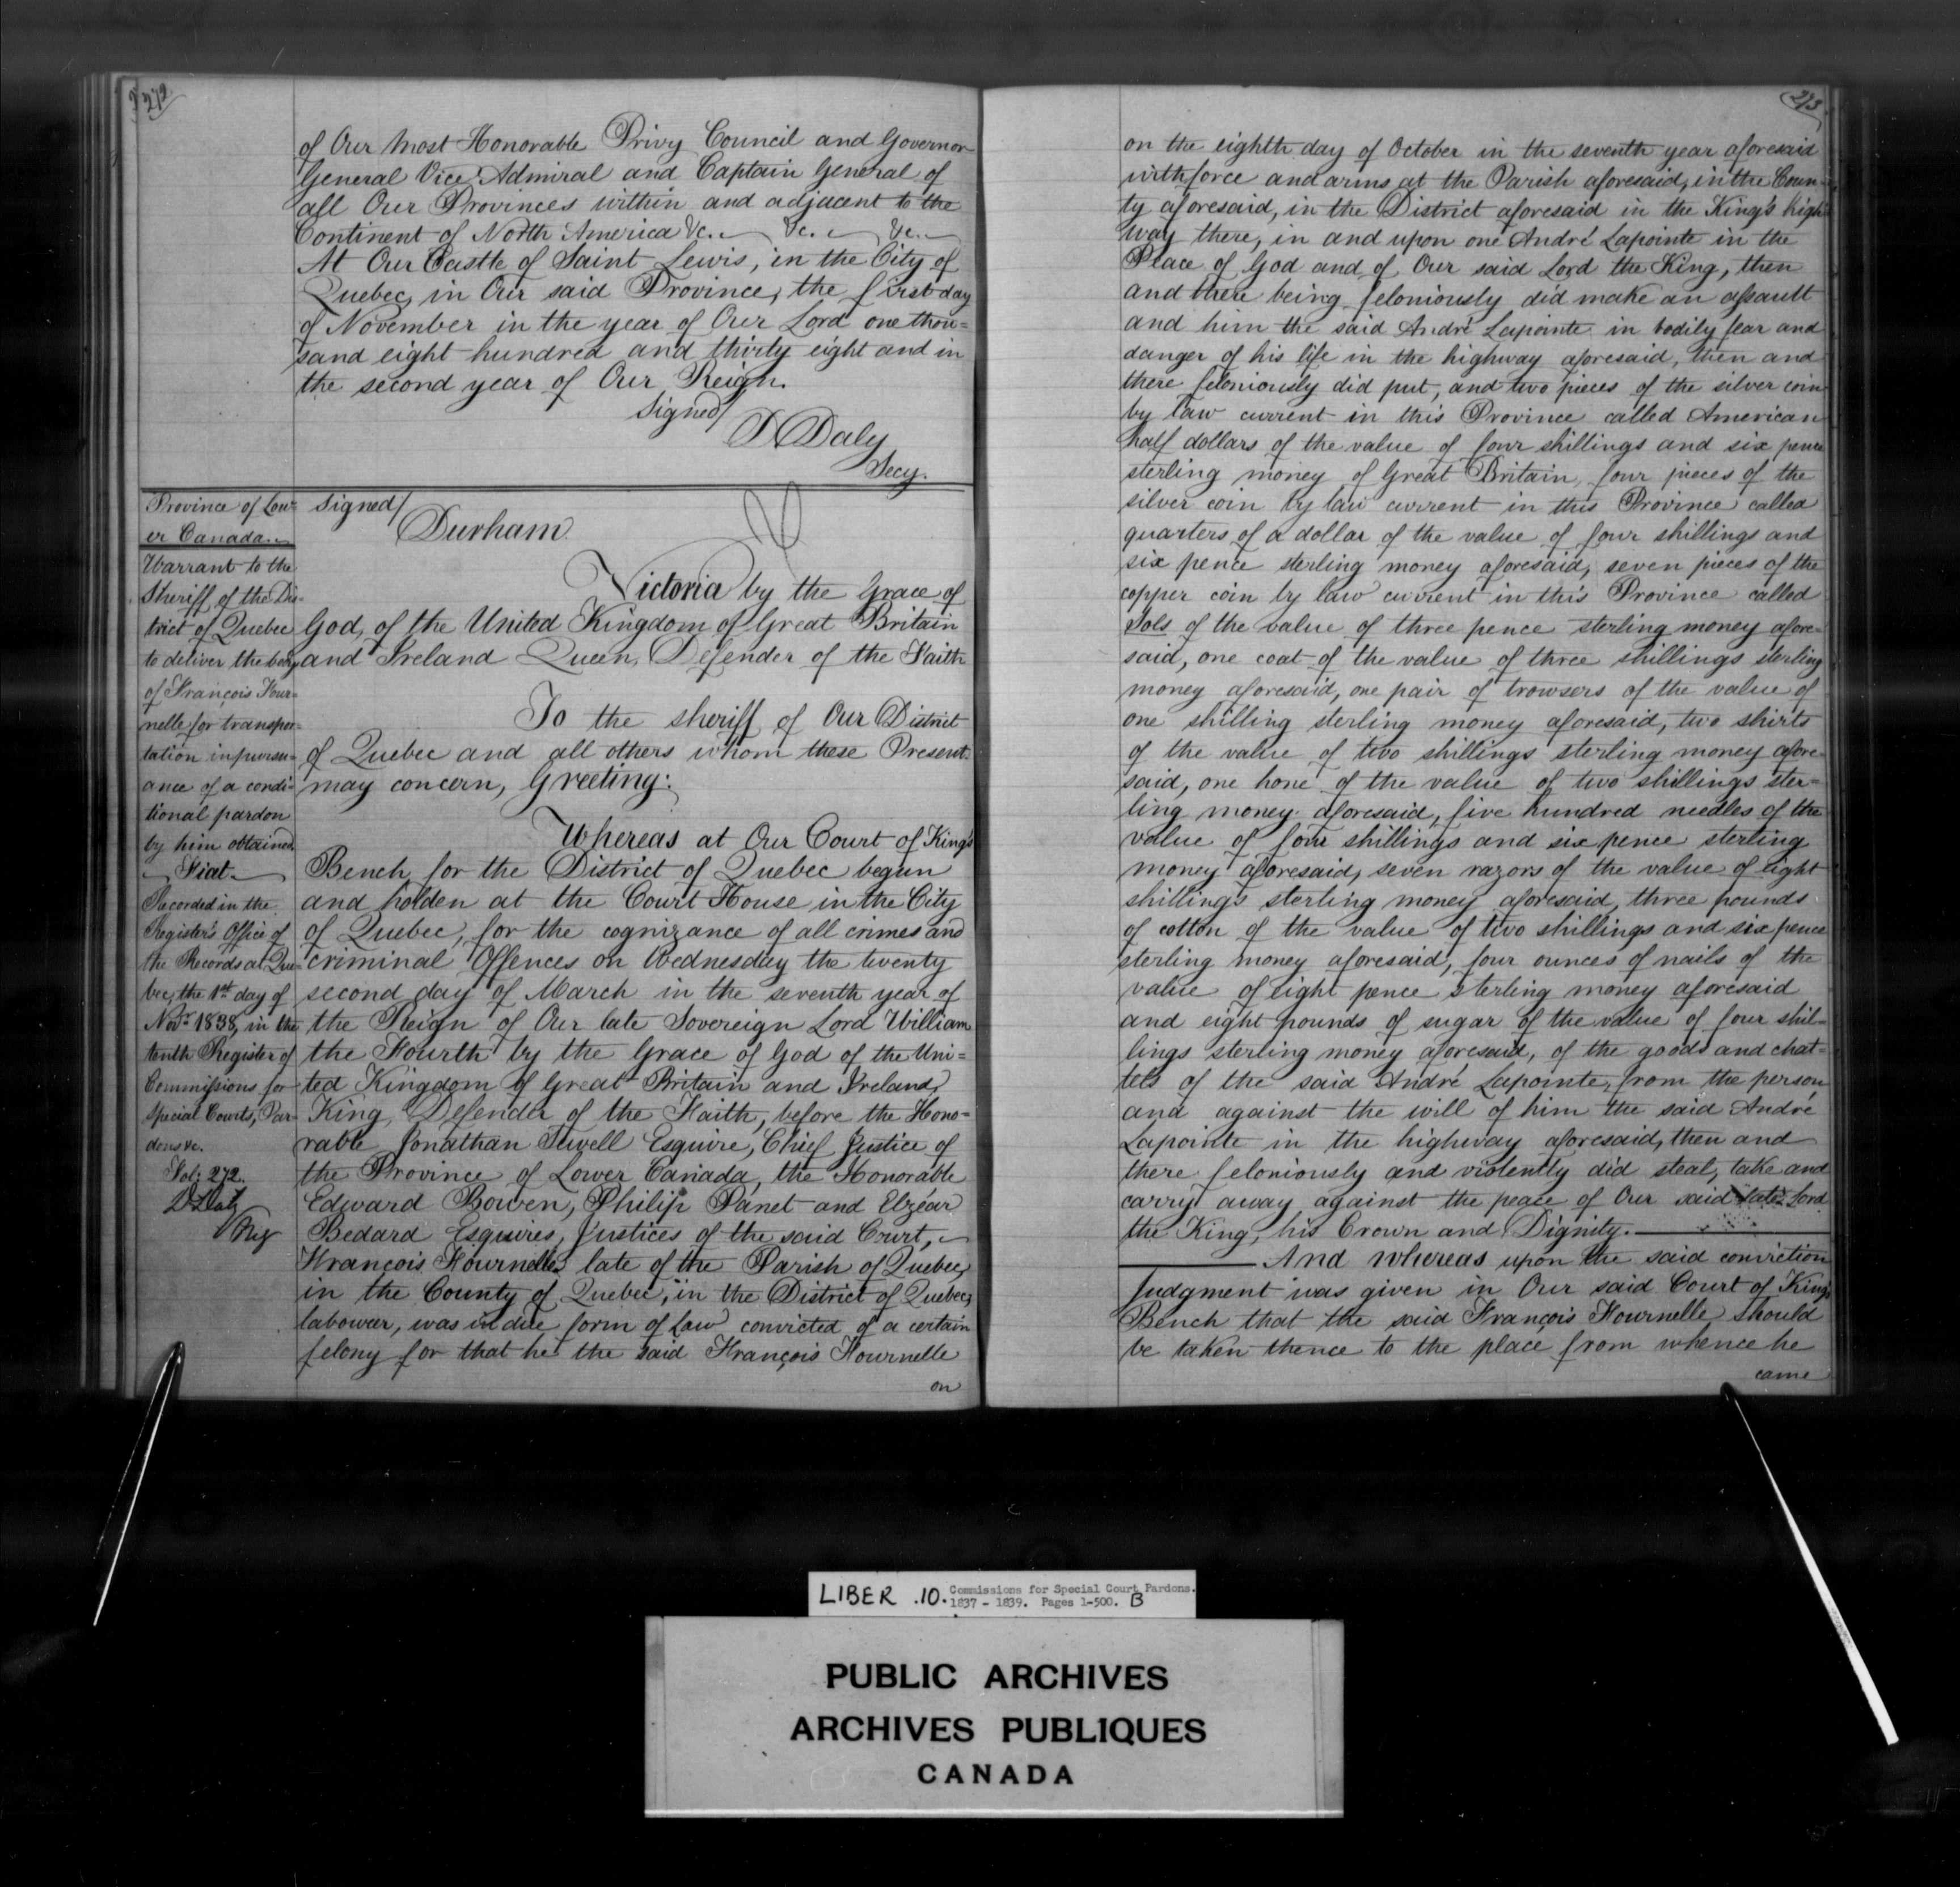 272
of Our Most Honorable Privy Council and Governor
General Vice Admiral and Captain General of
all Our Provinces within and adjacent to the
Continent of North America &c. &c. &c.
At Our Castle of Saint Lewis, in the City of
Quebec, in Our said Province, the first day
of November in the year of Our Lord one thou=
sand eight hundred and thirty eight and in
the second year of Our Reign.
Signed/
D Daly
Secy.
Province of Low=
er Canada.
Warrant to the
Sheriff of the Dis=
trict of Quebec
to deliver the body
of François Four=
nelle for transpor=
tation in pursu=
ance of a condi=
tional pardon
by him obtained.
Fiat.
Recorded in the
Register's Office of
the Records at Que=
bec, the 1st day of
Novr 1838, in the
tenth Register of
Commissions for
special Courts, Par
dons &c.
Fol: 272.
D Daly
Reg
Signed/
Durham
Victoria by the Grace of
God, of the United Kingdom of Great Britain
and Ireland Queen, Defender of the Faith
To the sheriff of Our District
of Quebec and all others whom these Present.
may concern, Greeting:
Whereas at Our Court of King's
Bench for the District of Quebec begun
and holden at the Court House in the City
of Quebec, for the cognizance of all crimes and
criminal Offences on Wednesday the twenty
second day of March in the seventh year of
the Reign of Our late Sovereign Lord William
the Fourth by the Grace of God of the Uni=
ted Kingdom of Great Britain and Ireland,
King, Defender of the Faith, before the Hono=
rable Jonathan Sewell Esquire, Chief Justice of
the Province of Lower Canada, the Honorable
Edward Bowen, Philip Panet and Elzéar
Bedard Esquires, Justices of the said Court,
François Fournelle, late of the Parish of Quebec,
in the County of Quebec, in the District of Quebec,
labourer, was in due form of Law convicted of a certain
felony for that he the said François Fournelle
on
273
on the eighth day of October in the seventh year aforesaid
with force and arms at the Parish aforesaid, in the Coun=
ty aforesaid, in the District aforesaid in the King's high
way there, in and upon one André Lapointe in the
Peace of God and of Our said Lord the King, then
and there being feloniously did make an assault
and him the said André Lapointe in bodily fear and
danger of his life in the highway aforesaid, then and
there feloniously did put, and two pieces of the silver coin
by law current in this Province called American
half dollars of the value of four shillings and six pence
sterling money of Great Britain, four pieces of the
silver coin by law current in this Province called
quarters of a dollar of the value of four shillings and
six pence sterling money aforesaid, seven pieces of the
copper coin by law current in this Province called
Sols of the value of three pence sterling money afore=
said, one coat of the value of three shillings sterling
money aforesaid, one pair of trowsers of the value of
one shilling sterling money aforesaid, two shirts
of the value of two shillings sterling money afore=
said, one hone of the value of two shillings ster=
ling money aforesaid, five hundred needles of the
value of four shillings and six pence sterling
money aforesaid, seven razors of the value of eight
shillings sterling money aforesaid, three pounds
of cotton of the value of two shillings and six pence
sterling money aforesaid, four ounces of nails of the
value of eight pence sterling money aforesaid
and eight pounds of sugar of the value of four shil=
lings sterling money aforesaid, of the goods and chat=
tels of the said André Lapointe, from the person
and against the will of him the said André
Lapointe in the highway aforesaid, then and
there feloniously and violently did steal, take and
carry away against the peace of Our said late Lord
the King, his Crown and Dignity.
And whereas upon the said conviction
Judgment was given in Our said Court of King's
Bench that the said François Fournelle should
be taken thence to the place from whence he
came
LIBER .10. Commissions for Special Court Pardons.
1837 - 1839. Pages 1-500. B
PUBLIC ARCHIVES
ARCHIVES PUBLIQUES
CANADA